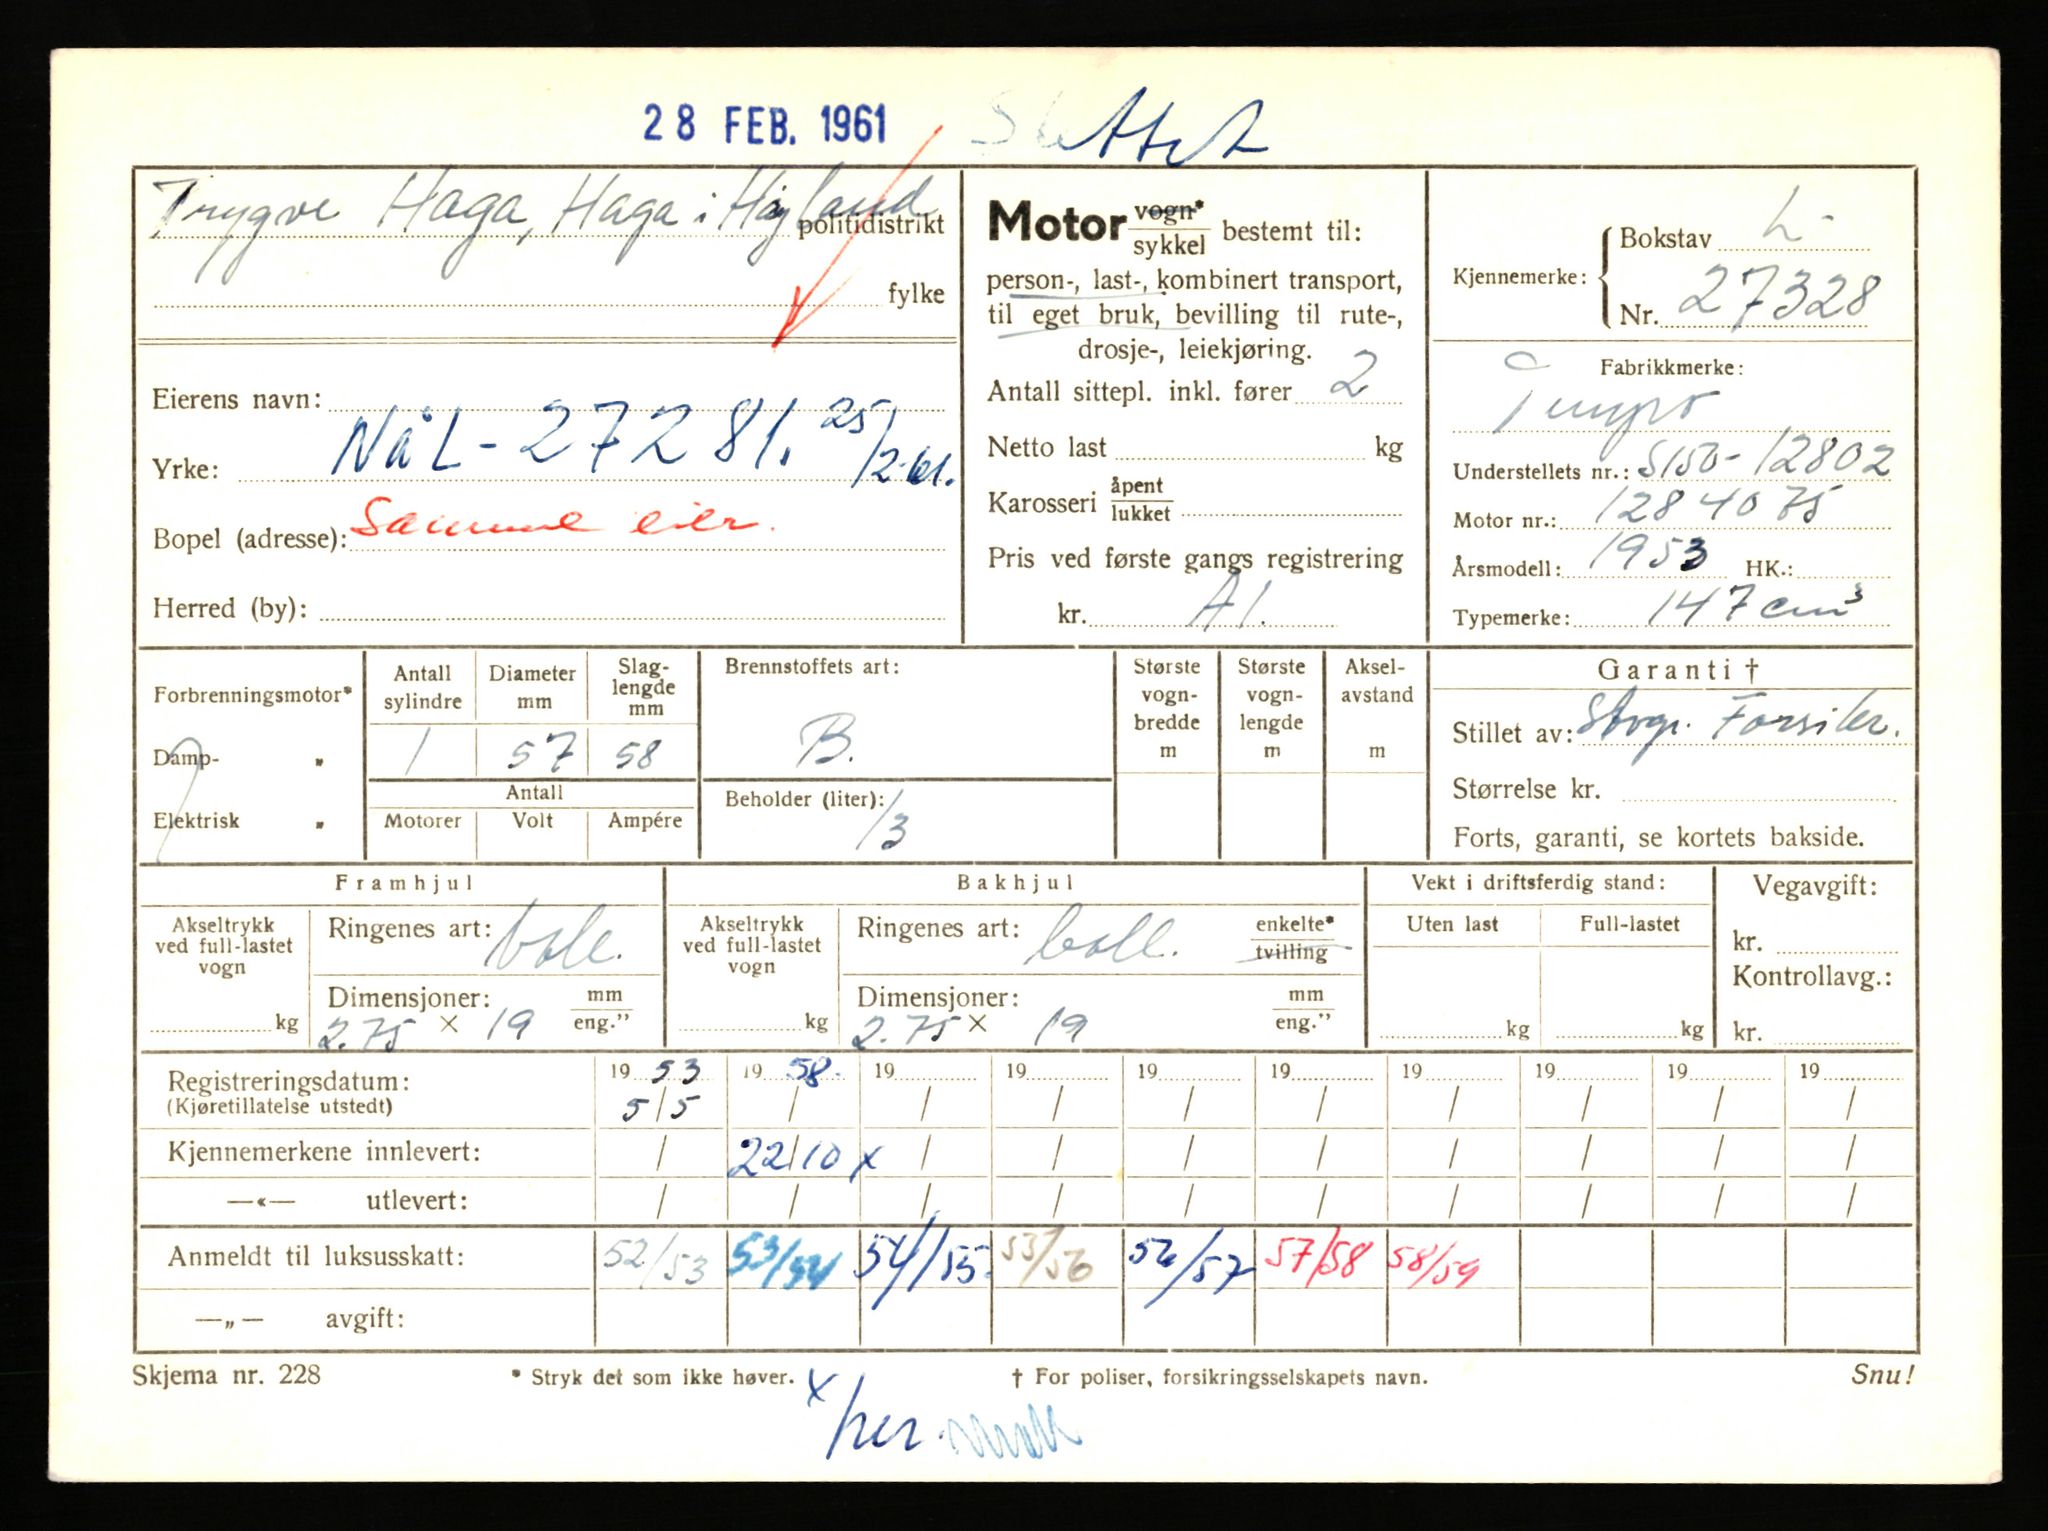 28 FEB. 1961 Slettet
Trygve Haga, Haga i Høyland
politidistrikt
fylke
Eierens navn:
Nå L - 27281. 25/2-61.
Yrke:
Bopel (adresse): Samme eier.
Herred (by):
Motor vogn* / sykkel bestemt til:
person-, last-, kombinert transport,
til eget bruk, bevilling til rute-,
drosje-, leiekjøring.
Antall sittepl. inkl. fører 2
Netto last kg
Karosseri åpent / lukket
Pris ved første gangs registrering
kr. A1.
Kjennemerke: Bokstav L-
Nr. 27328
Fabrikkmerke:
Tempo
Understellets nr.: S150-12802
Motor nr.: 1284075
Årsmodell: 1953 HK.:
Typemerke: 147 cm³
Forbrenningsmotor*
Damp- „
Elektrisk „
Antall sylindre Diameter mm Slag-lengde mm
1 57 58
Antall
Motorer Volt Ampére
Brennstoffets art:
B.
Beholder (liter): 13
Største vogn-bredde m
Største vogn-lengde m
Aksel-avstand m
Garanti †
Stillet av: Stvgr. Forsikr.
Størrelse kr.
Forts, garanti, se kortets bakside.
Framhjul
Akseltrykk ved full-lastet vogn
kg
Ringenes art: ball.
Dimensjoner: mm / eng."
2.75 × 19
Bakhjul
Akseltrykk ved full-lastet vogn
kg
Ringenes art: ball. enkelte* / tvilling
Dimensjoner: mm / eng."
2.75 × 19
Vekt i driftsferdig stand:
Uten last Full-lastet
kg kg
Vegavgift:
kr.
Kontrollavg.:
kr.
Registreringsdatum: 19 53 19 58. 19 19 19 19 19 19 19 19
(Kjøretillatelse utstedt) 5/5 / / / / / / / / /
Kjennemerkene innlevert: / 22/10 x / / / / / / / /
—«— utlevert: / / / / / / / / / /
Anmeldt til luksusskatt: 52/53 53/54 54/55. 55/56 56/57 57/58 58/59
—„— avgift:
Skjema nr. 228 * Stryk det som ikke høver. † For poliser, forsikringsselskapets navn. Snu!
x her.